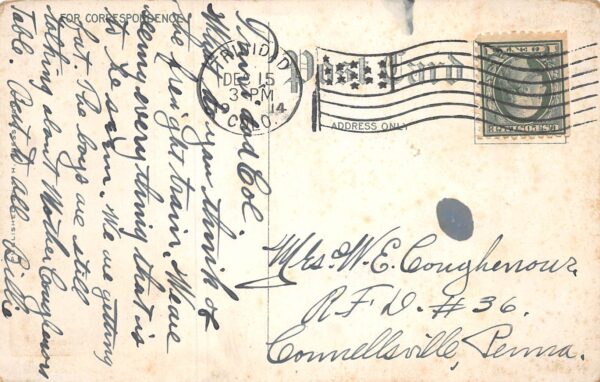 FOR CORRESPONDENCE.
Post Card
ADDRESS ONLY
TRINIDAD
DEC 15
3 PM
14
COLO.
Trinidad Col.
What do you think of
the freight train. We are
seeing everything that is
to be seen. We are getting
fat. The boys are still
talking about Mother Coughenours
table. Love to all Billie
Mrs. W. E. Coughenour,
R. F. D. #36.
Connellsville, Penna.